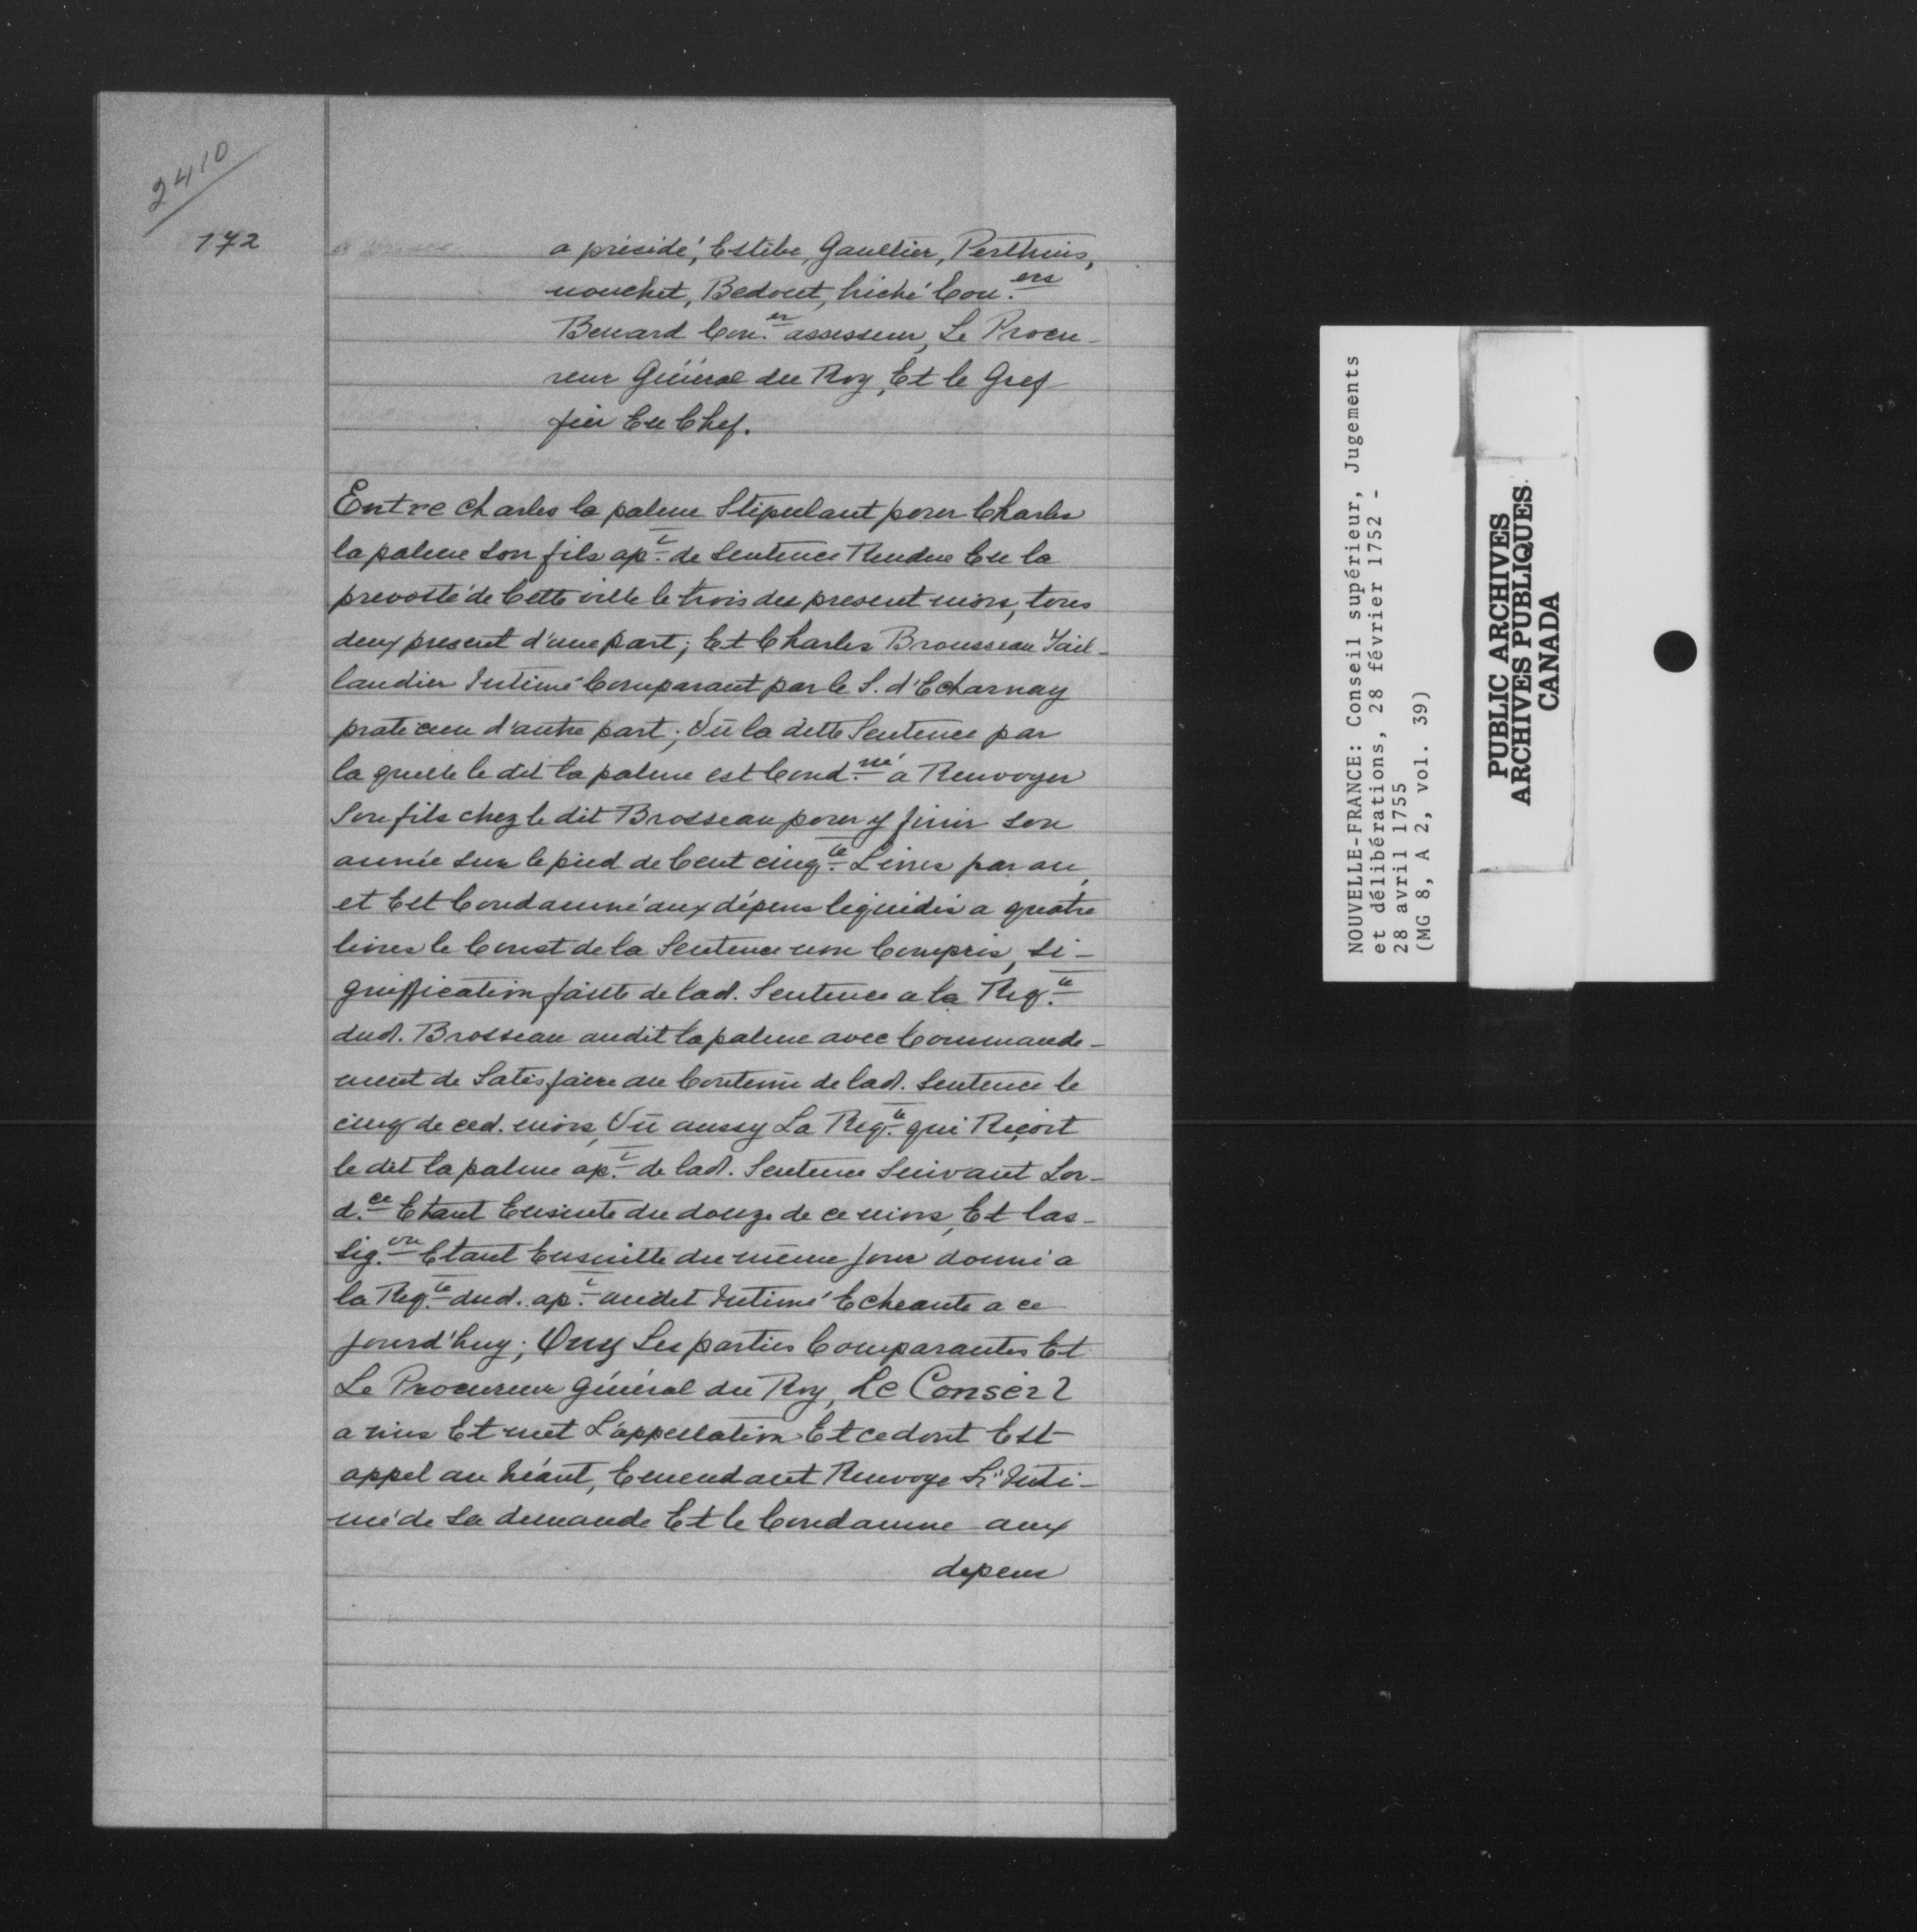 2410
172
a présidé, Estèbe, Gaultier, Perthuis,
nouchet, Bedout, hiché Con.ers
Benard Con.er assesseur, Le Procu-
reur Général du Roy, Et le Gref-
fier En Chef.
Entre Charles la palme Stipulant pour Charles
la palme Son fils ap.t de Sentence Rendue En la
prevosté de Cette ville le trois du present mois, tous
deux present d'une part; Et Charles Brousseau Tail-
landier Intimé Comparant par le S. d'Echarnay
praticien d'autre part; Vû la ditte Sentence par
la quelle le dit la palme est Cond.né a Renvoyer
Son fils chez le dit Brosseau pour y finir Son
année Sur le pied de Cent cinq.te Livres par an,
et Est Condamné aux dépens liquidés a quatre
livres le Coust de la Sentence non Compris, Si-
gniffication faitte de lad. Sentence a la Req.te
dud. Brosseau audit la palme avec Commande-
ment de Satisfaire au Contenu de lad. Sentence le
cinq de ced. mois, Vû aussy La Req.te qui Reçoit
le dit la palme ap.t de lad. Sentence Suivant Lor-
d.ce Etant Ensuite du douze de ce mois, Et las-
sig.on Etant Ensuitte du même jour donné a
la Req.te dud. ap.t audit Intimé Echeante a ce
jourd'huy; Ouy Les parties Comparantes Et
Le Procureur général du Roy, Le Conseil
a mis Et met L'appellation Et ce dont Est
appel au Néant, Emendant Renvoye L'Inti-
mé de Sa demande Et le Condamne aux
depens
NOUVELLE-FRANCE: Conseil supérieur, Jugements
et délibérations, 28 février 1752 -
28 avril 1755
(MG 8, A 2, vol. 39)
PUBLIC ARCHIVES
ARCHIVES PUBLIQUES
CANADA